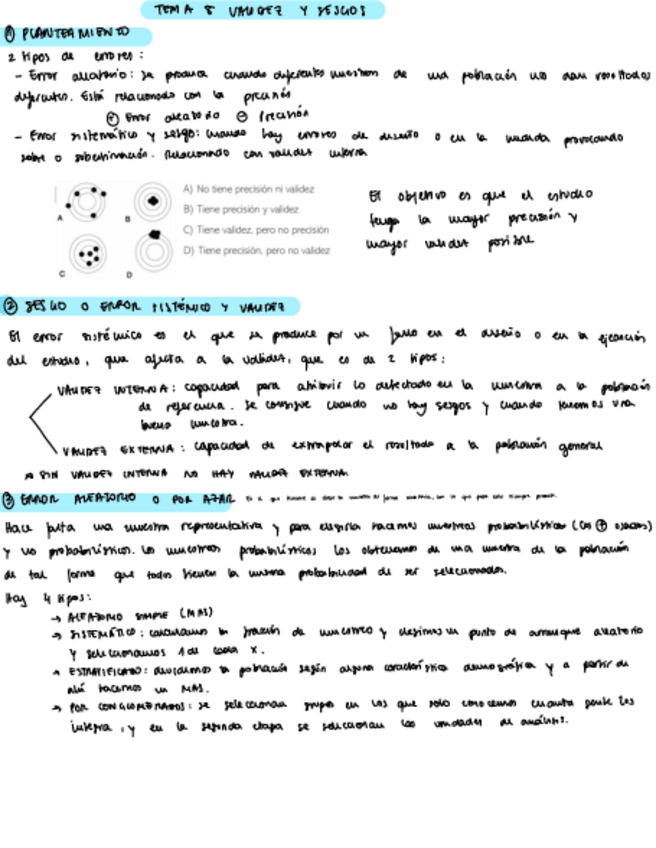 TEMA 8 VALIDEZ Y SESGOS
① PLANTEAMIENTO
2 tipos de errores:
- Error aleatorio: se produce cuando diferentes muestras de una población no dan resultados
diferentes. Está relacionado con la precisión
⊕ Error aleatorio ⊖ Precisión
- Error sistemático y sesgo: cuando hay errores de diseño o en la medida provocando
sobre o subestimación. Relacionado con validez interna
A) No tiene precisión ni validez
B) Tiene precisión y validez
C) Tiene validez, pero no precisión
D) Tiene precisión, pero no validez
A B
C D
El objetivo es que el estudio
tenga la mayor precisión y
mayor validez posible
② SESGO O ERROR SISTÉMICO Y VALIDEZ
El error sistémico es el que se produce por un fallo en el diseño o en la ejecución
del estudio, que afecta a la validez, que es de 2 tipos:
VALIDEZ INTERNA: capacidad para atribuir lo detectado en la muestra a la población
de referencia. Se consigue cuando no hay sesgos y cuando tenemos una
buena muestra.
VALIDEZ EXTERNA: capacidad de extrapolar el resultado a la población general
SIN VALIDEZ INTERNA NO HAY VALIDEZ EXTERNA
③ ERROR ALEATORIO O POR AZAR
Hace falta una muestra representativa y para elegirla hacemos muestreos probabilísticos (los ⊕ usados)
y no probabilísticos. Los muestreos probabilísticos los obtenemos de una muestra de la población
de tal forma que todos tienen la misma probabilidad de ser seleccionados.
Hay 4 tipos:
→ ALEATORIO SIMPLE (MAS)
→ SISTEMÁTICO: calculamos la fracción de muestreo y elegimos un punto de arranque aleatorio
y seleccionamos 1 de cada x.
→ ESTRATIFICADO: dividimos la población según alguna característica demográfica y a partir de
ahí hacemos un MAS.
→ POR CONGLOMERADOS: se seleccionan grupos en los que solo conocemos cuanta gente los
integra, y en la segunda etapa se seleccionan las unidades de análisis.